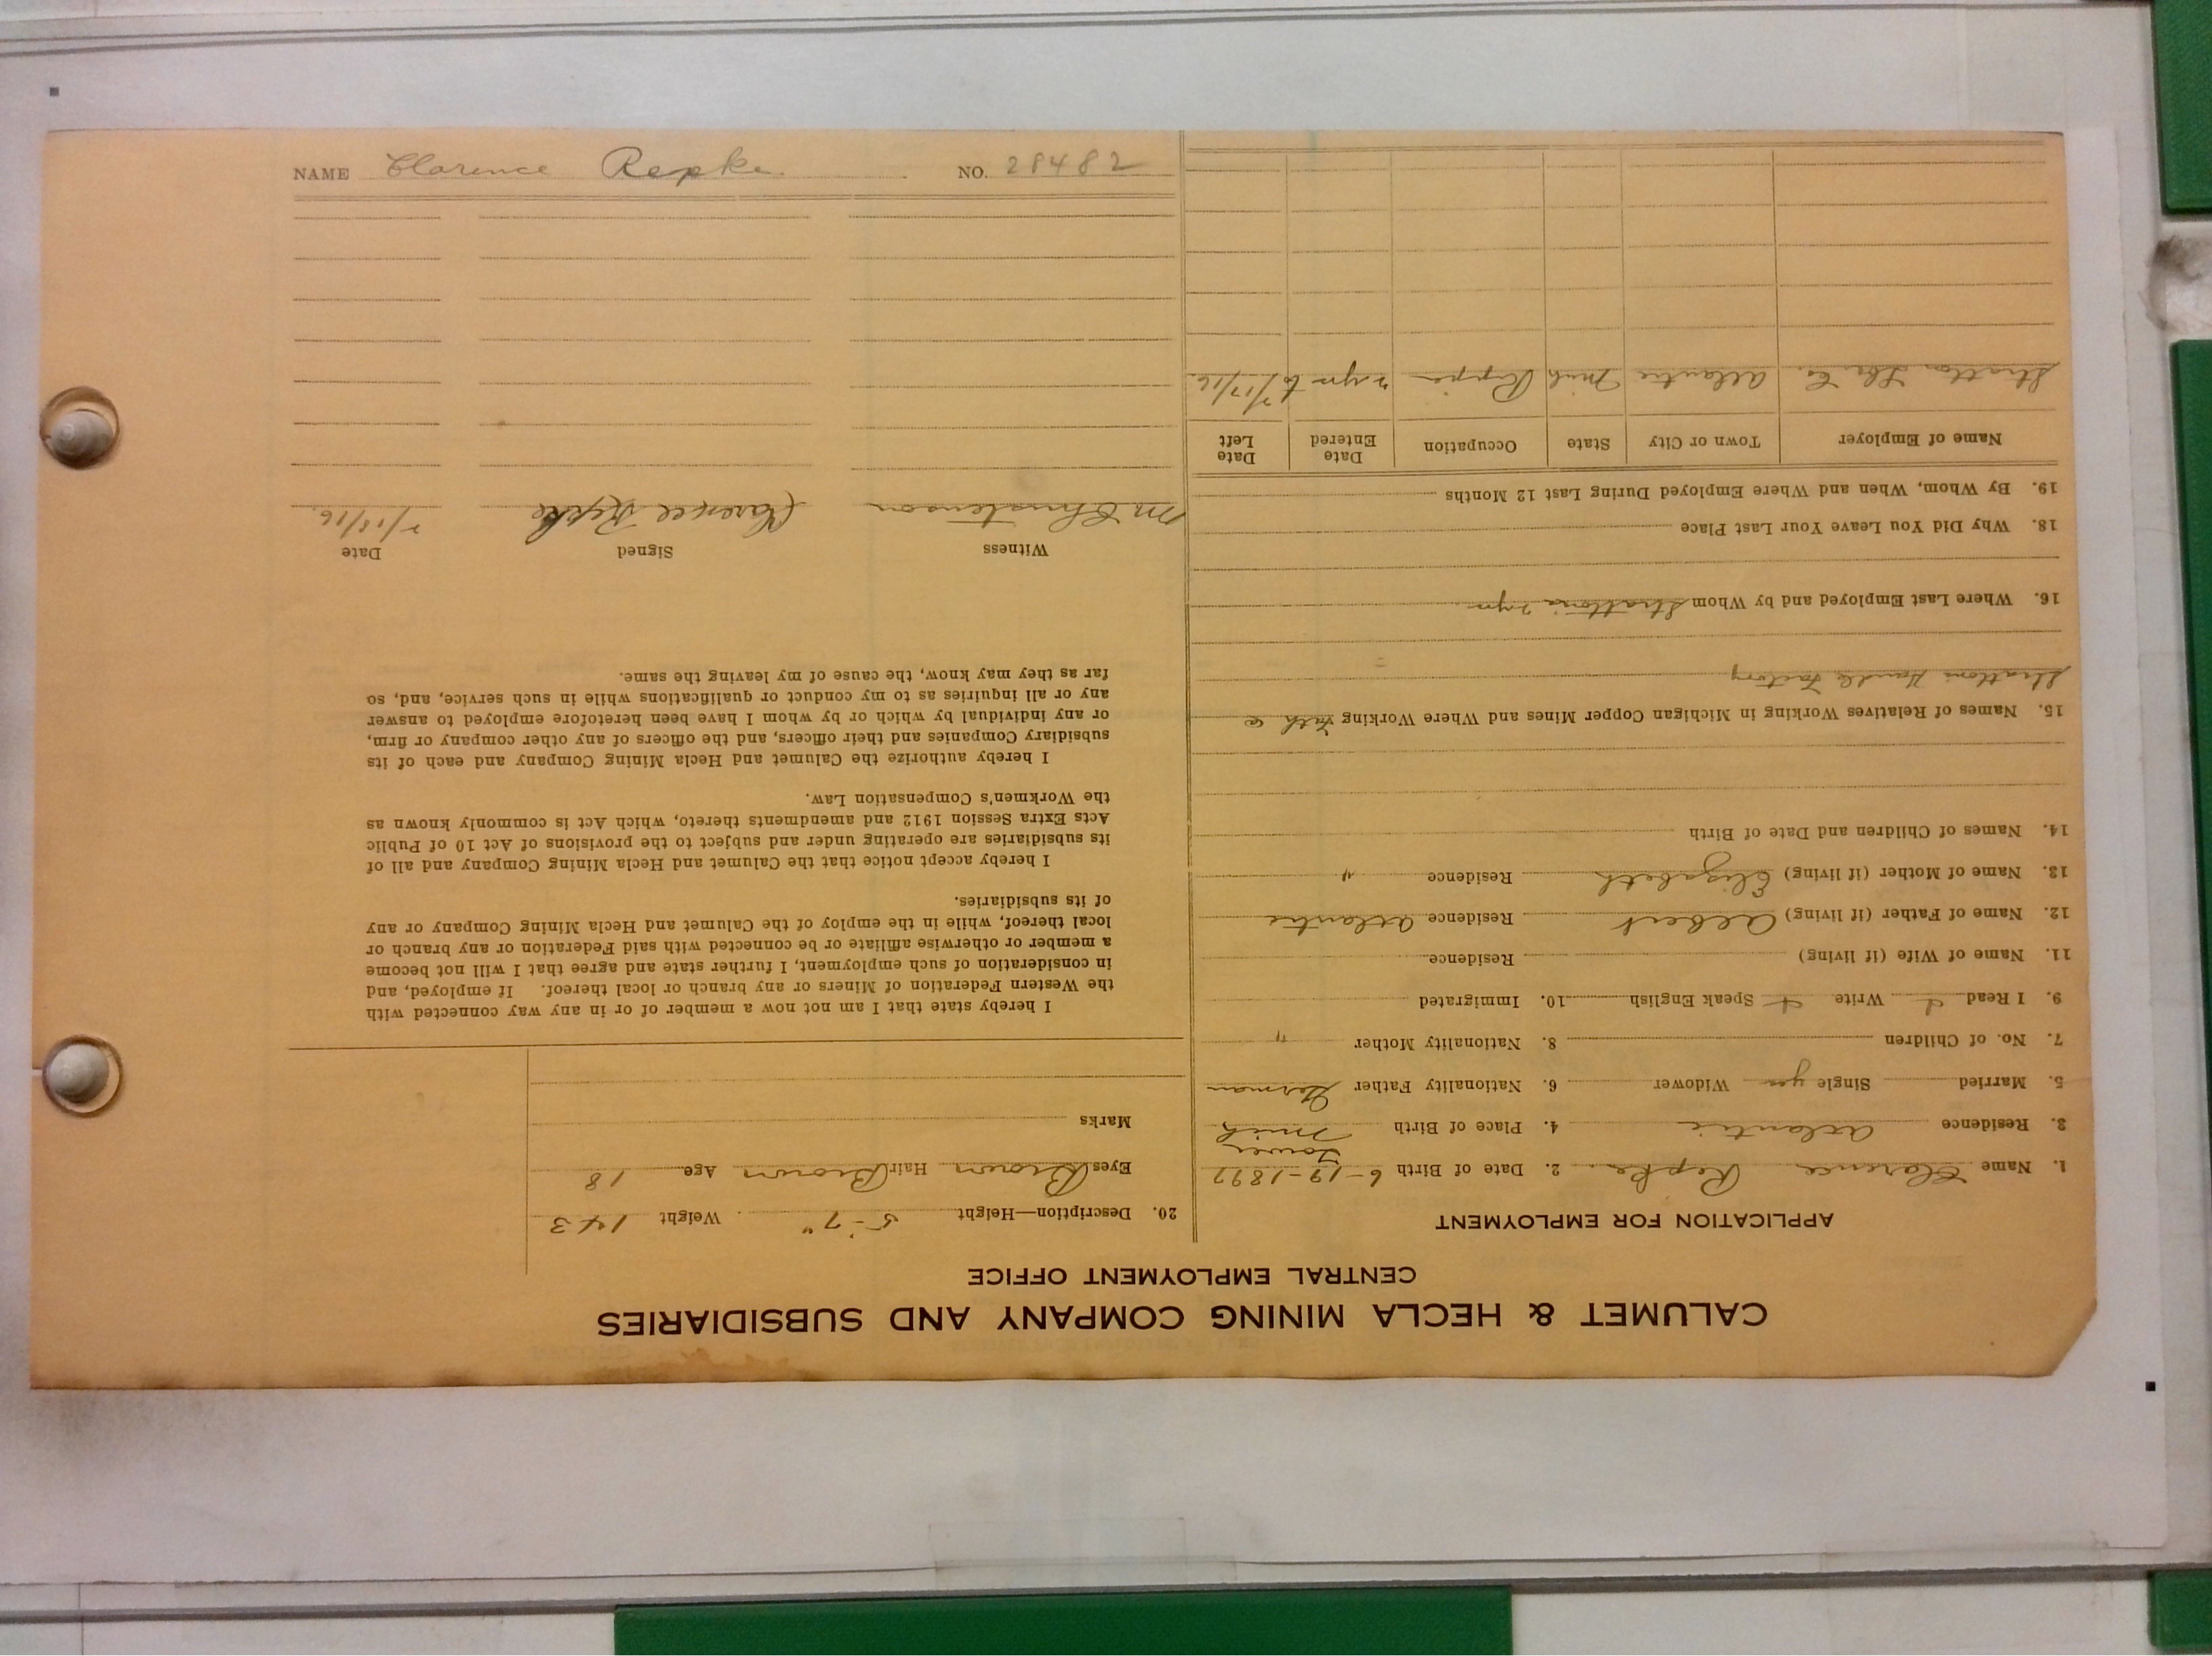 CALUMET & HECLA MINING COMPANY AND SUBSIDIARIES
CENTRAL EMPLOYMENT OFFICE
APPLICATION FOR EMPLOYMENT
1. Name Clarence Repke 2. Date of Birth 6-19-1897
3. Residence Atlantic 4. Place of Birth Lower Mich
5. Married Single yes Widower 6. Nationality Father German
7. No. of Children 8. Nationality Mother "
9. I Read Write Speak English 10. Immigrated
11. Name of Wife (if living) Residence
12. Name of Father (if living) Albert Residence Atlantic
13. Name of Mother (if living) Elizabeth Residence "
14. Names of Children and Date of Birth
15. Names of Relatives Working in Michigan Copper Mines and Where Working Fath @
Strattons Handle Factory
16. Where Last Employed and by Whom Strattons 2 yrs
18. Why Did You Leave Your Last Place
19. By Whom, When and Where Employed During Last 12 Months
Name of Employer Town or City State Occupation Date Entered Date Left
Stratton Co. Atlantic Mich 2 yrs to 7/17/16.
20. Description—Height 5'-7" Weight 143
Eyes Brown Hair Brown Age 18
Marks
I hereby state that I am not now a member of or in any way connected with
the Western Federation of Miners or any branch or local thereof. If employed, and
in consideration of such employment, I further state and agree that I will not become
a member or otherwise affiliate or be connected with said Federation or any branch or
local thereof, while in the employ of the Calumet and Hecla Mining Company or any
of its subsidiaries.
I hereby accept notice that the Calumet and Hecla Mining Company and all of
its subsidiaries are operating under and subject to the provisions of Act 10 of Public
Acts Extra Session 1912 and amendments thereto, which Act is commonly known as
the Workmen's Compensation Law.
I hereby authorize the Calumet and Hecla Mining Company and each of its
subsidiary Companies and their officers, and the officers of any other company or firm,
or any individual by which or by whom I have been heretofore employed to answer
any or all inquiries as to my conduct or qualifications while in such service, and, so
far as they may know, the cause of my leaving the same.
Witness Signed Date
M Christenson Clarence Repke 7/18/16.
NAME Clarence Repke. NO. 28482